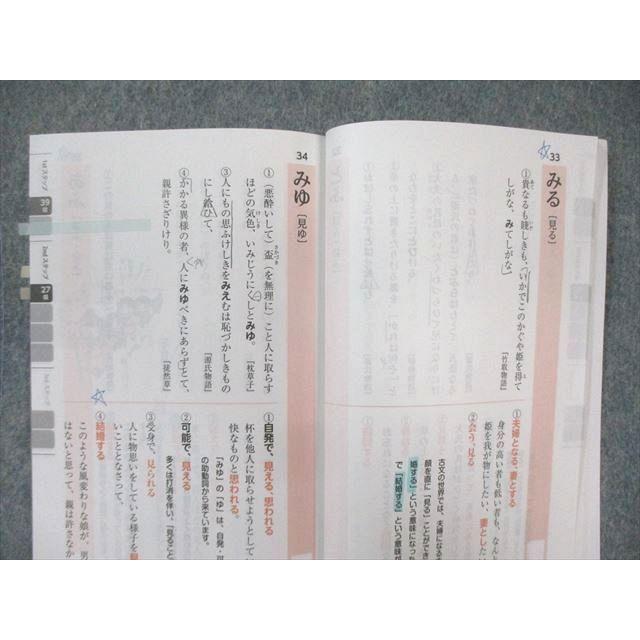 33
みる［見る］
①貴なるも賤しきも、「いかでこのかぐや姫を得て
しがな、みてしがな」
［竹取物語］
①夫婦となる、妻とする
身分の高い者も低い者も、なん
姫を我が物にしたい、妻とした
②会う、見る
古文の世界では、夫婦になる
顔を直に「見る」ことができ
婚する」という意味になった
で「結婚する」という意味が
34
みゆ［見ゆ］
①（悪酔いして）盃（を無理に）こと人に取らす
ほどの気色、いみじうにくしとみゆ。
［枕草子］
③人にもの思ふけしきをみえむは恥づかしきもの
にし給ひて、
［源氏物語］
④かかる異様の者、人にみゆべきにあらずとて、
親許さざりけり。
［徒然草］
①自発で、見える、思われる
杯を他人に取らせようとして
快なものと思われる。
「みゆ」の「ゆ」は、自発・可
の助動詞から来ています。
②可能で、見える
多くは打消を伴い、「見ること
③受身で、見られる
人に物思いをしている様子を
いこととなさって、
④結婚する
このような風変わりな娘が、男
はないと思って、親は許さなか
1stステップ
39
2ndステップ
27